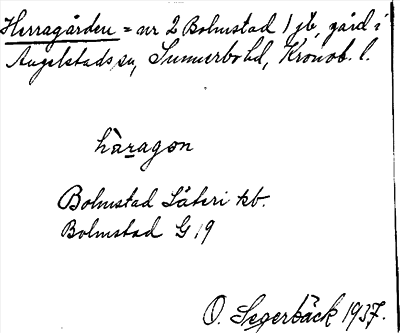 Herragården = nr 2 Bolmstad 1 jb, gård i
Angelstads sn, Sunnerbo hd, Kronob. l.
hàragon
Bolmstad Säteri kb.
Bolmstad G 19
O. Segerbäck 1937.